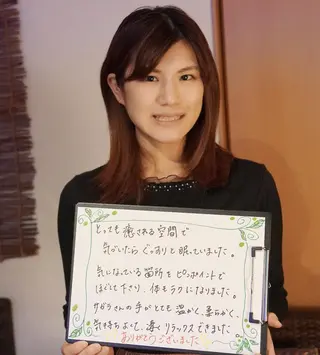 とっても癒される空間で
気がいたらぐっすりと眠っていました。
気になっている箇所をピンポイントで
ほぐして下さり、体もラクになりました。
サガラさんの手がとても温かく、柔らかく、
気持ちよくて、凄くリラックスできました
ありがとうございました